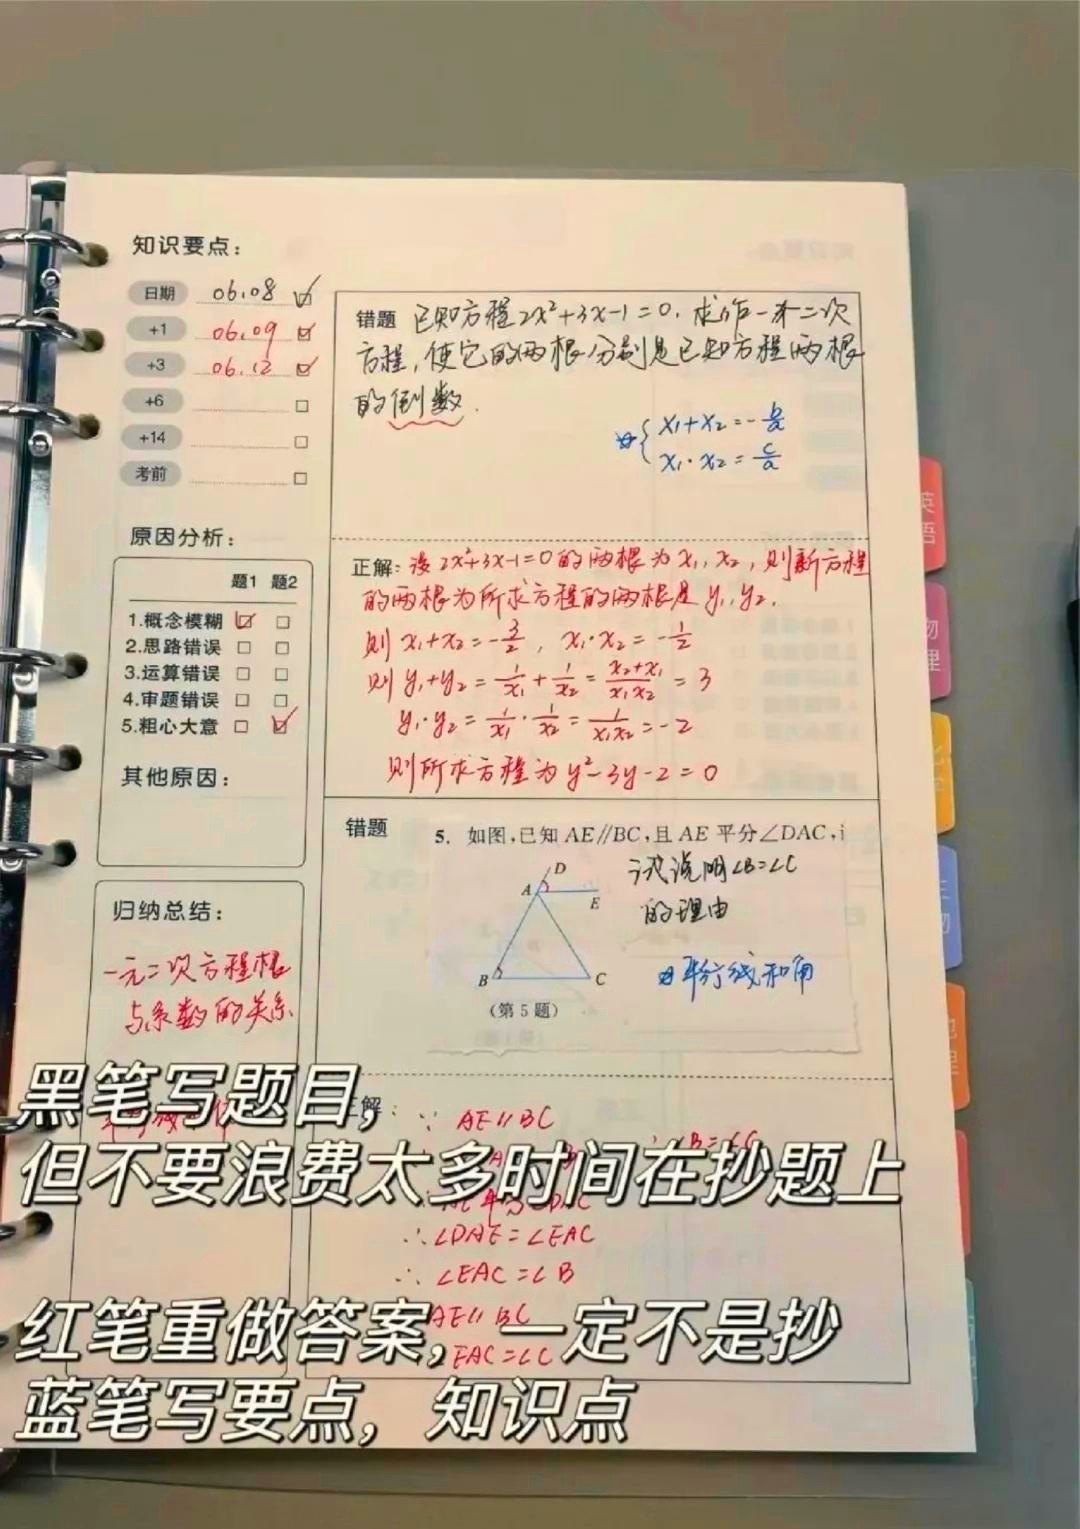 知识要点：
日期 06.08
+1 06.09
+3 06.12
+6
+14
考前
原因分析：
题1 题2
1.概念模糊
2.思路错误
3.运算错误
4.审题错误
5.粗心大意
其他原因：
归纳总结：
一元二次方程根
与系数的关系
错题 已知方程2x²+3x-1=0，求作一个二次
方程，使它的两根分别是已知方程两根
的倒数.
x₁+x₂=-b/a
x₁·x₂=c/a
正解：设2x²+3x-1=0的两根为x₁,x₂，则新方程
的两根为所求方程的两根是y₁,y₂.
则x₁+x₂=-3/2，x₁·x₂=-1/2
则y₁+y₂=1/x₁+1/x₂=(x₂+x₁)/(x₁x₂)=3
y₁·y₂=1/x₁·1/x₂=1/(x₁x₂)=-2
则所求方程为y²-3y-2=0
错题 5. 如图,已知AE∥BC,且AE平分∠DAC,
试说明∠B=∠C
的理由
D
A
E
B
C
(第5题)
平行线和角
正解：∵ AE∥BC
∴∠DAE=∠EAC
∴∠EAC=∠B
AE∥BC
EAC=∠C
∠B=∠C
黑笔写题目,
但不要浪费太多时间在抄题上
红笔重做答案，一定不是抄
蓝笔写要点，知识点
英语
物理
化学
生物
地理